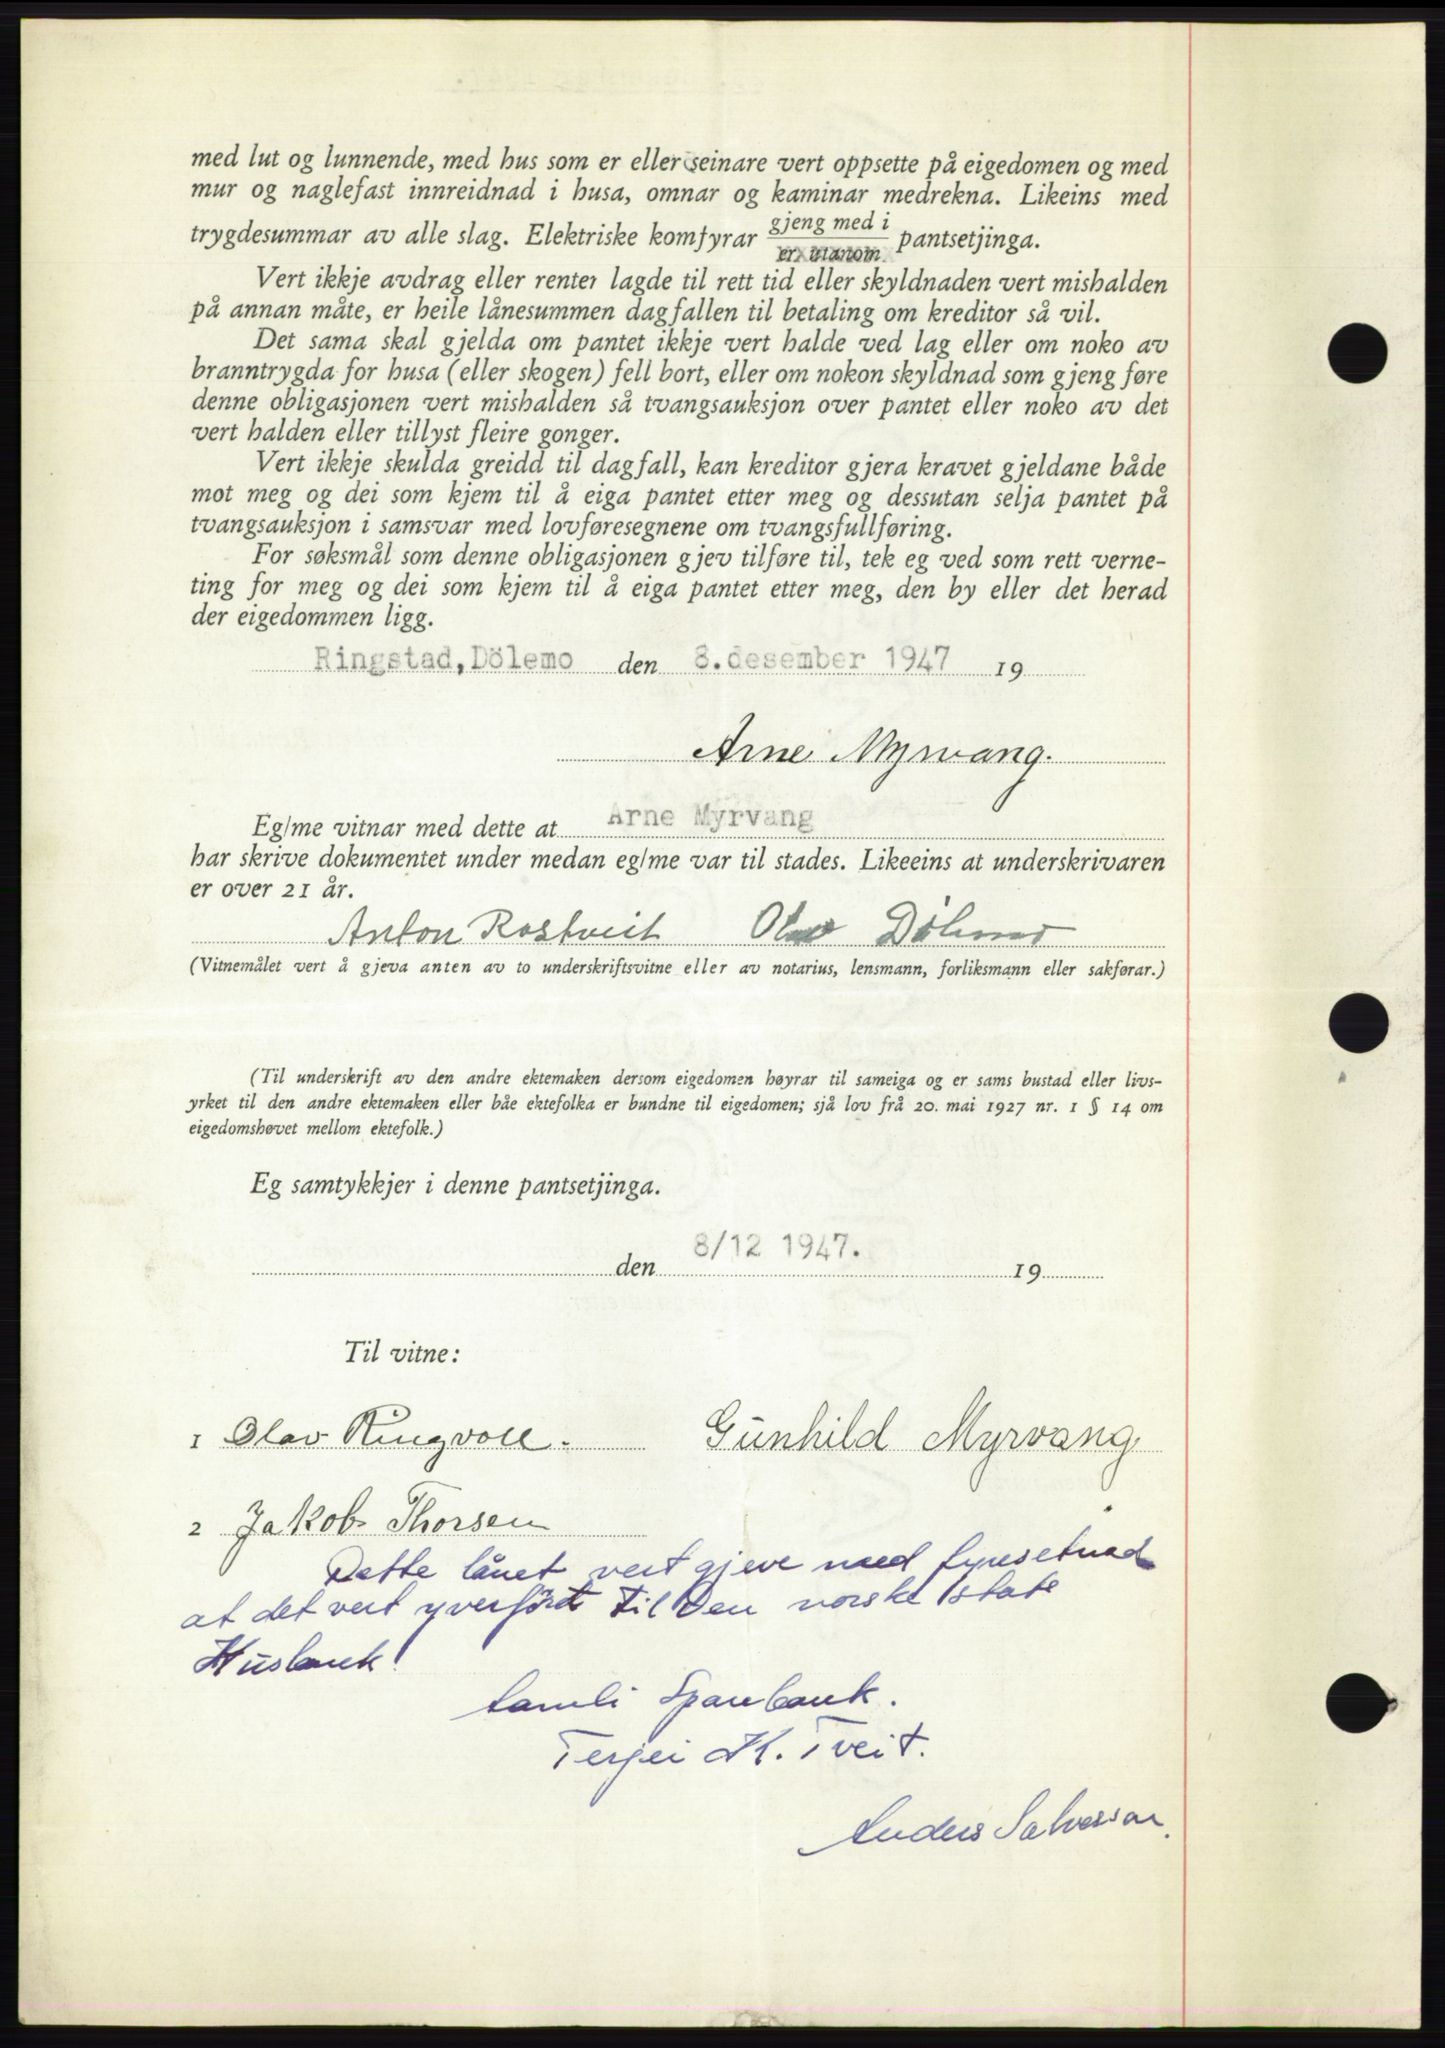 med lut og lunnende, med hus som er eller seinare vert oppsette på eigedomen og med
mur og naglefast innreidnad i husa, omnar og kaminar medrekna. Likeins med
trygdesummar av alle slag. Elektriske komfyrar gjeng med i / er utanom pantsetjinga.
Vert ikkje avdrag eller renter lagde til rett tid eller skyldnaden vert mishalden
på annan måte, er heile lånesummen dagfallen til betaling om kreditor så vil.
Det sama skal gjelda om pantet ikkje vert halde ved lag eller om noko av
branntrygda for husa (eller skogen) fell bort, eller om nokon skyldnad som gjeng føre
denne obligasjonen vert mishalden så tvangsauksjon over pantet eller noko av det
vert halden eller tillyst fleire gonger.
Vert ikkje skulda greidd til dagfall, kan kreditor gjera kravet gjeldane både
mot meg og dei som kjem til å eiga pantet etter meg og dessutan selja pantet på
tvangsauksjon i samsvar med lovføresegnene om tvangsfullføring.
For søksmål som denne obligasjonen gjev tilføre til, tek eg ved som rett verne-
ting for meg og dei som kjem til å eiga pantet etter meg, den by eller det herad
der eigedommen ligg.
Ringstad, Dölemo den 8.desember 1947 19
Arne Myrvang.
Eg/me vitnar med dette at Arne Myrvang
har skrive dokumentet under medan eg/me var til stades. Likeeins at underskrivaren
er over 21 år.
Anton Rostveit Olav Dölemo
(Vitnemålet vert å gjeva anten av to underskriftsvitne eller av notarius, lensmann, forliksmann eller sakførar.)
(Til underskrift av den andre ektemaken dersom eigedomen høyrar til sameiga og er sams bustad eller livs-
yrket til den andre ektemaken eller båe ektefolka er bundne til eigedomen; sjå lov frå 20. mai 1927 nr. 1 § 14 om
eigedomshøvet mellom ektefolk.)
Eg samtykkjer i denne pantsetjinga.
den 8/12 1947. 19
Til vitne:
1 Olav Ringvoll. Gunhild Myrvang
2 Jakob Thorsen
Dette lånet vert gjeve med fyresetnad
at det vert yverfört til Den norske stats
Husbank
Åmli Sparebank.
Terjei K. Tveit.
Anders Salvesson.